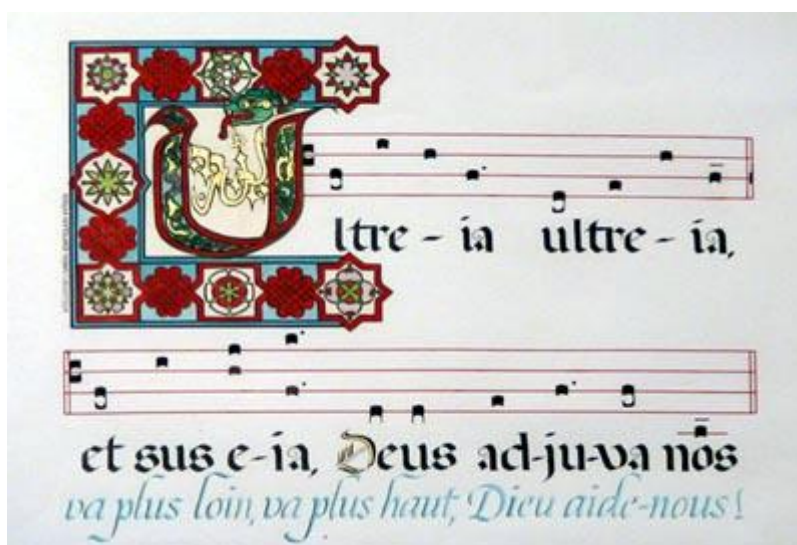 Ultre-ia ultre-ia,
et sus e-ia, Deus ad-ju-va nos
va plus loin, va plus haut, Dieu aide-nous!